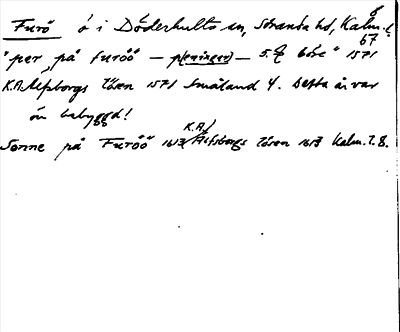 Furö ö i Döderhults sn, Stranda hd, Kalm. l.
67
"per på furöö — pæninger) — 5. båre" 1571
K.A. Älfsborgs lösen 1571 Småland 4. Detta år var
ön bebyggd!
Sonne på Furöö 1613 K.A. Älfsborgs lösen 1613 Kalm. l. 8.